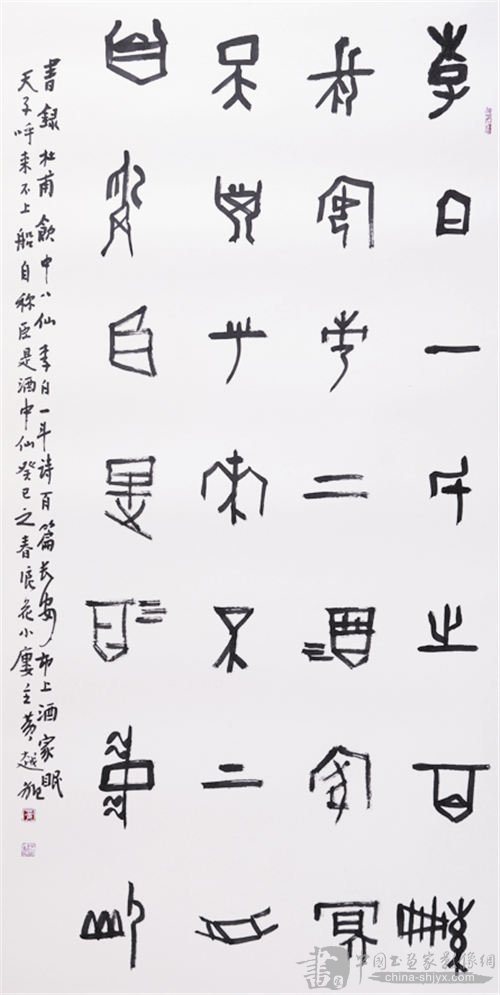 李白一斗詩百篇
長安市上酒家眠
天子呼來不上船
自稱臣是酒中仙
書録杜甫飲中八仙李白一斗詩百篇長安市上酒家眠
天子呼来不上船自称臣是酒中仙癸巳之春浪花小廔主黄越
中國書畫家影像網
china-shjyx.com